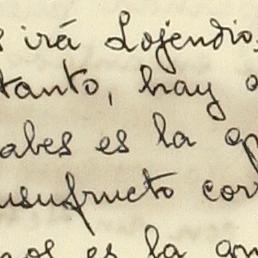 s irá Lojendio,
tanto, hay
abes es la
usufructo cor
nos es la